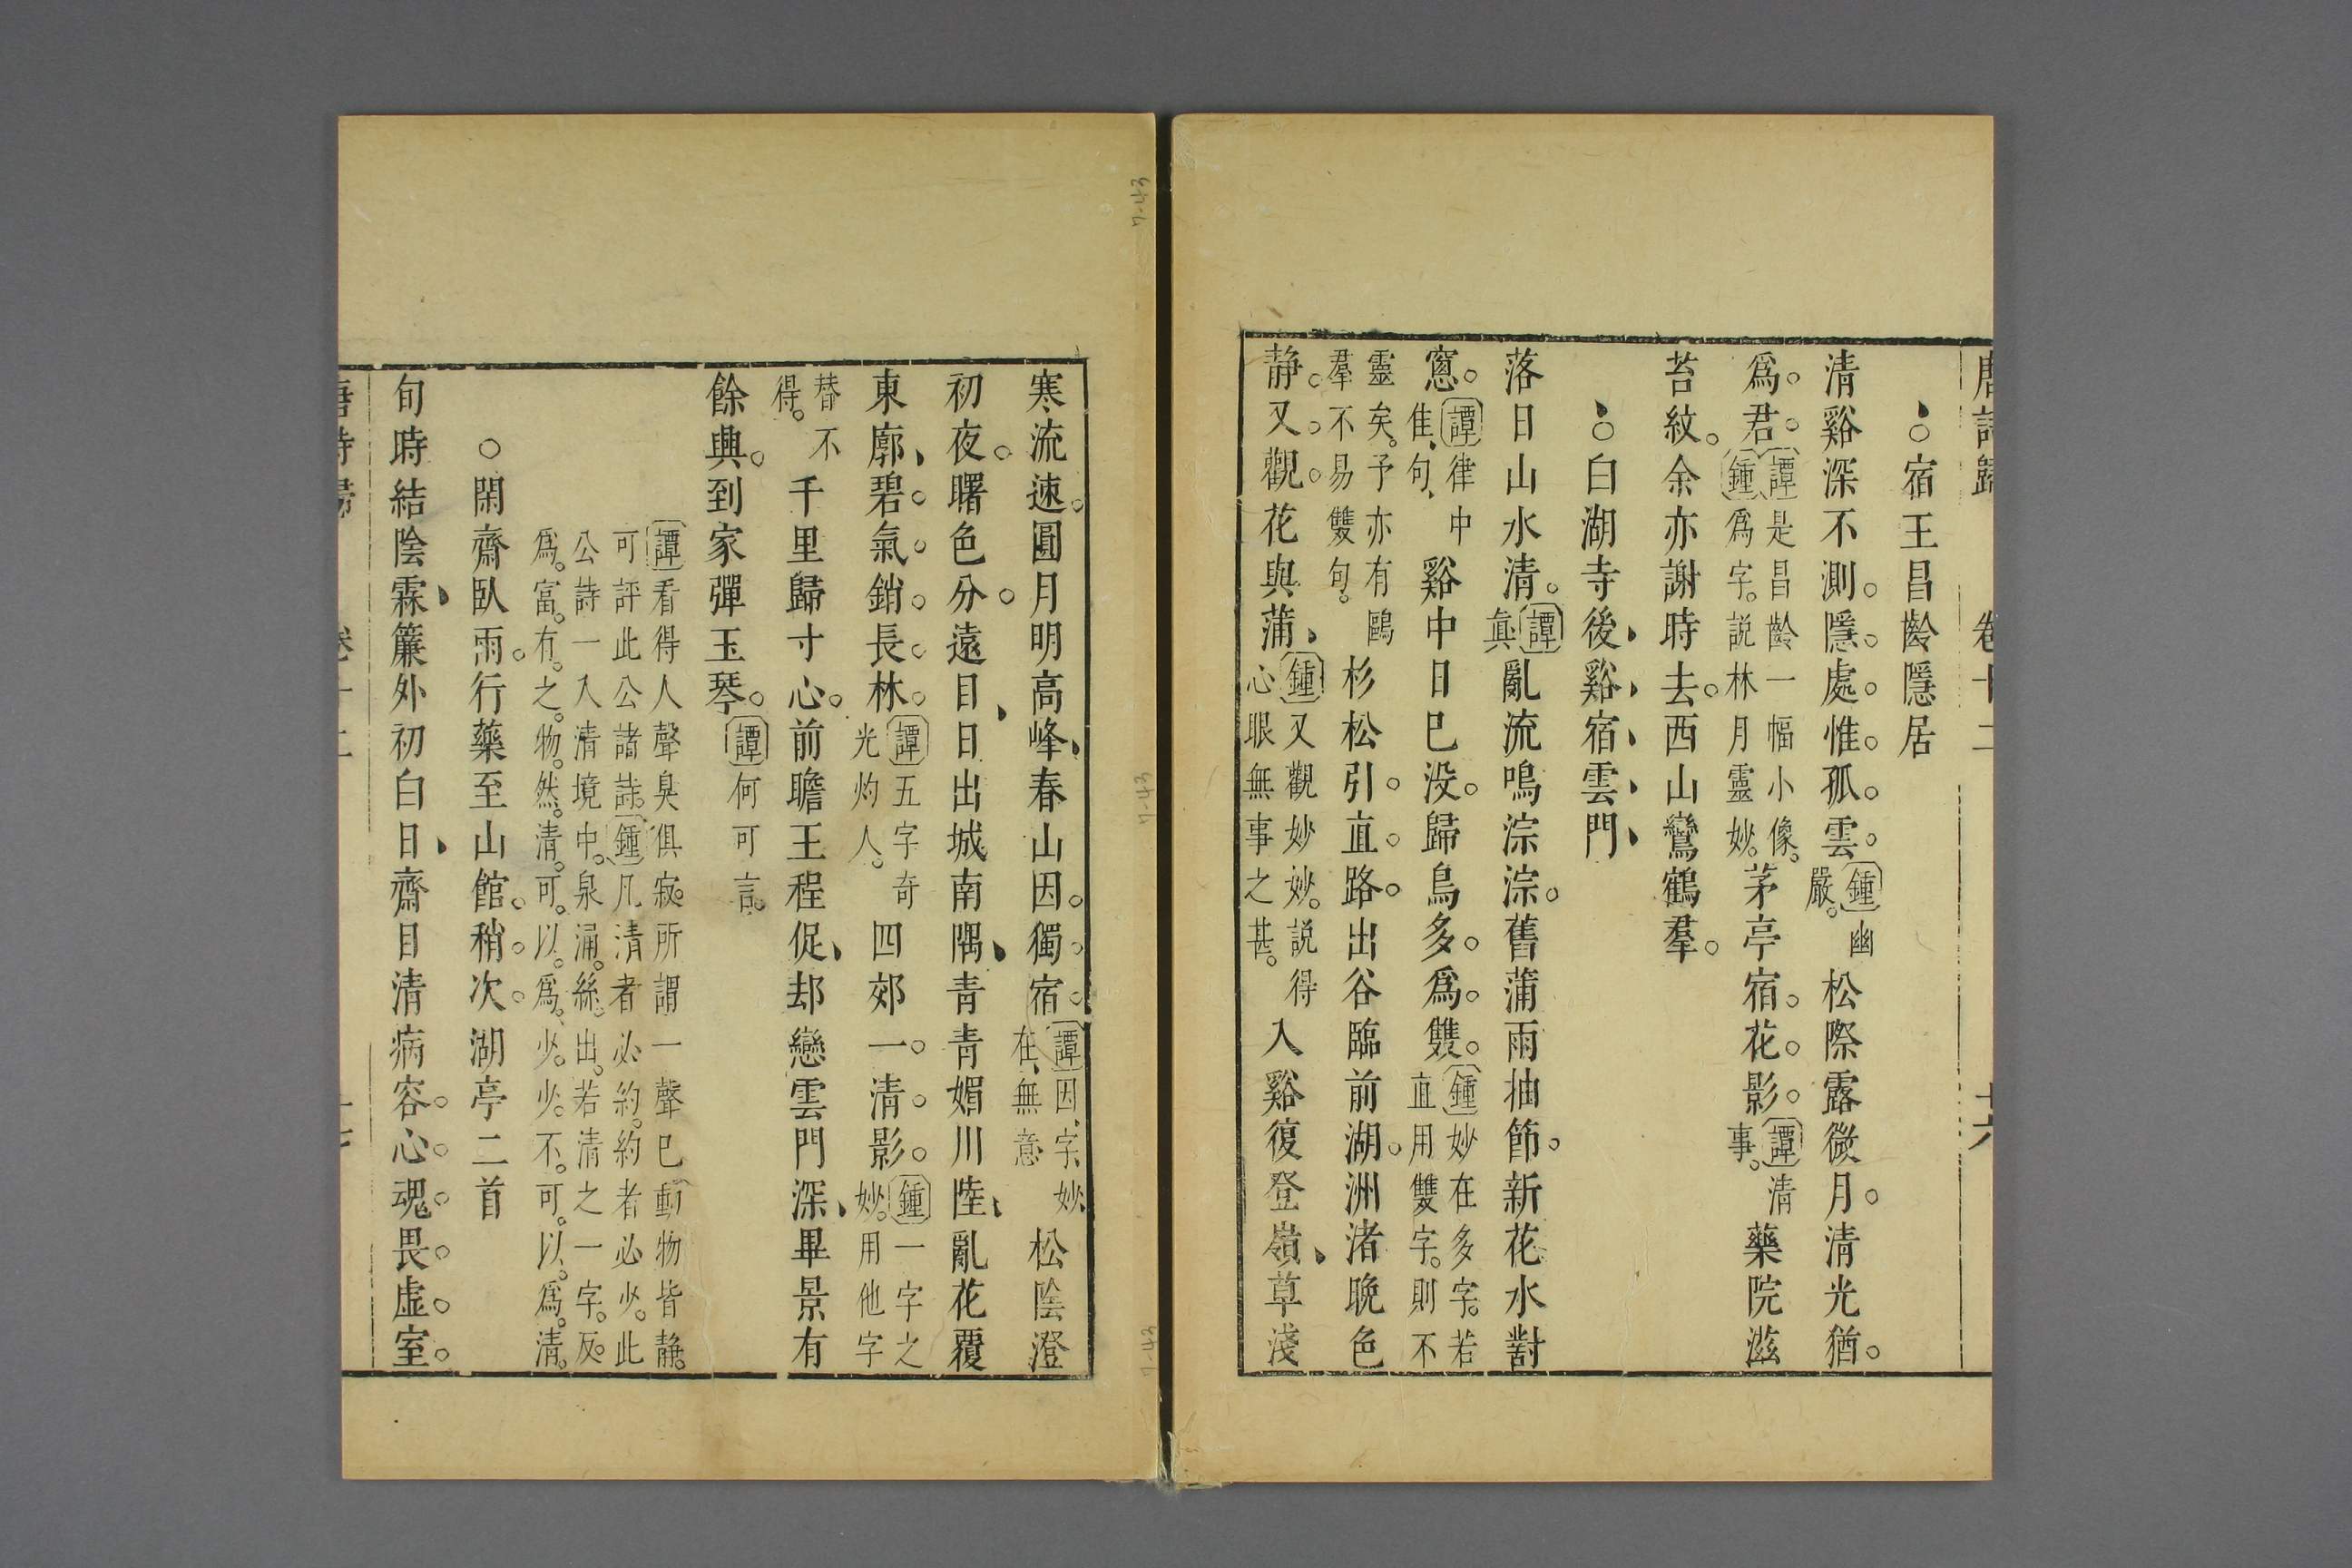 唐詩歸 卷十二 十六
宿王昌齡隱居
清谿深不測。隱。處。惟。孤。雲。鍾幽嚴。松際露微月。清光猶。
爲。君。譚是昌齡一幅小像。鍾爲字。說林月靈妙。茅亭宿。花。影。譚清事。藥院滋
苔紋。余亦謝時去。西山鸞鶴羣。
白湖寺後、谿、宿、雲、門、
落日山水清。譚真亂流鳴淙淙。舊蒲雨抽節。新花水對
窻。譚律中隹、句、中谿中日已没。歸鳥多。爲。雙。鍾妙在多字。若直用雙字。則不
靈矣。予亦有鷗羣不易雙句。杉松引。直。路。出谷臨前湖。洲渚晚色
静。又。觀。花與蒲、鍾又觀妙妙。説得心眼無事之甚。入谿復登嶺、草淺
寒流速。圓月明高峰、春山因。獨。宿。譚因、字、妙、在、無意松陰澄
初夜。曙色分。遠目、日出城南隅、青青媚川陸、亂花覆
東廓、碧。氣。銷。長。林。譚五字奇光灼人。四郊一。清。影。鍾一字之妙。用他字
替不得。千里歸寸心。前瞻王程促、却戀雲門深、畢景有
餘興。到家彈玉琴。譚何可言。
譚看得人聲臭俱寂。所謂一聲已動物皆静。
可評此公諸詩。鍾凡清者必約。約者必少。此
公詩一入清境中。泉涌。絲。出。若清之一字。反。
爲。富。有。之。物。然。清。可。以。爲。少。少。不。可。以。爲。清。
○閑齋臥雨。行藥至山館。稍。次。湖亭二首
旬時結陰霖、簾外初白日、齋目清病容。心。魂。畏。虚。室。
唐詩歸 卷十二 十七